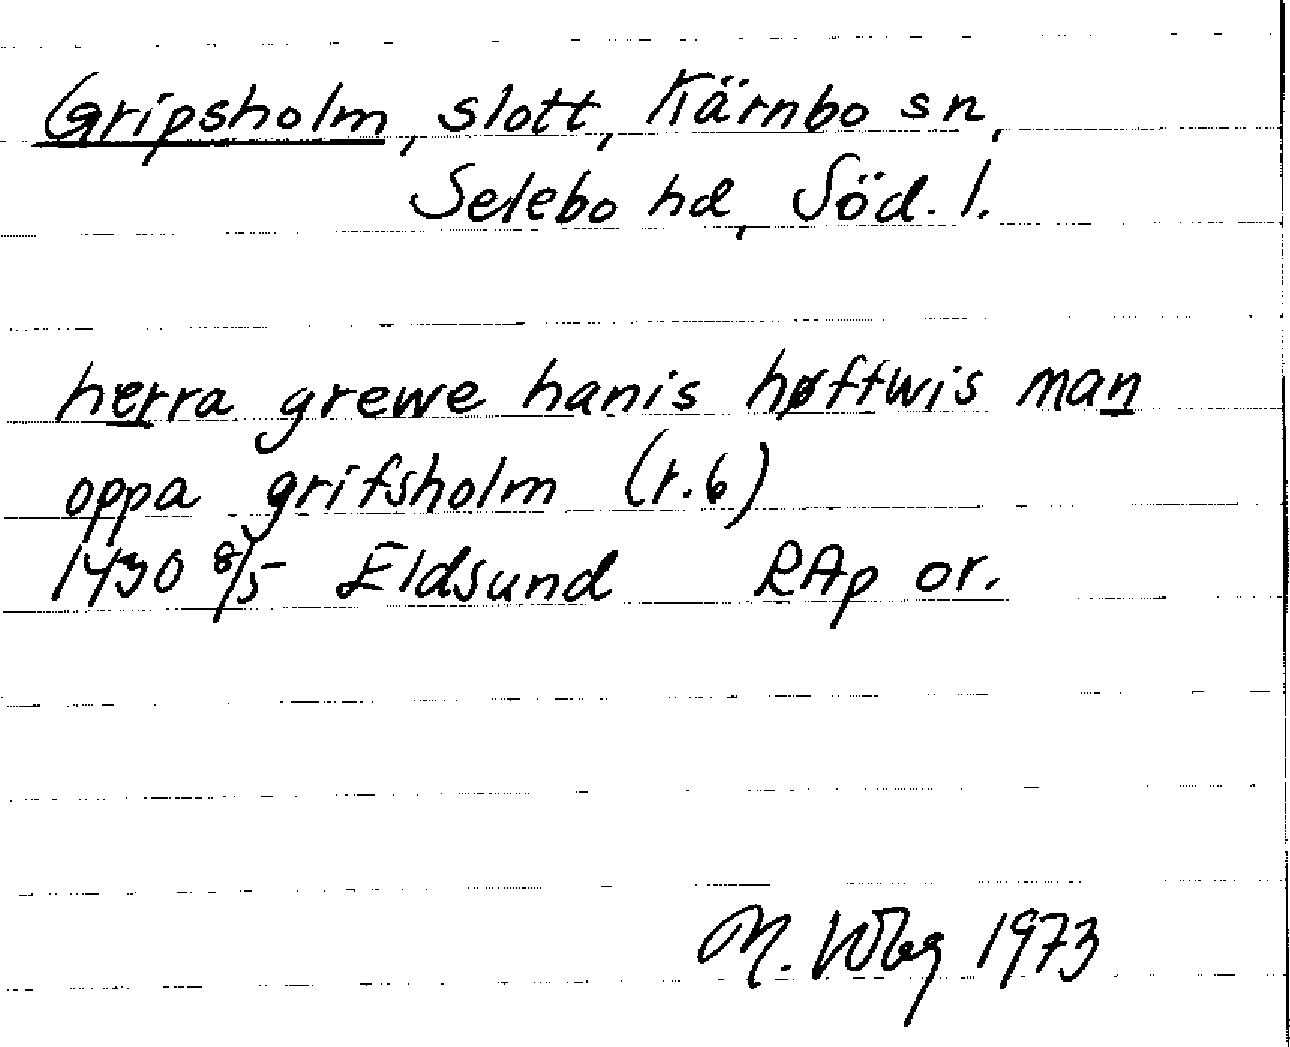 Gripsholm, slott, Kärnbo sn,
Selebo hd, Söd. l.
herra grewe hanis høftwis man
oppa grifsholm (r.6)
1430 8/5 Eldsund RAp or.
M. Wbg 1973